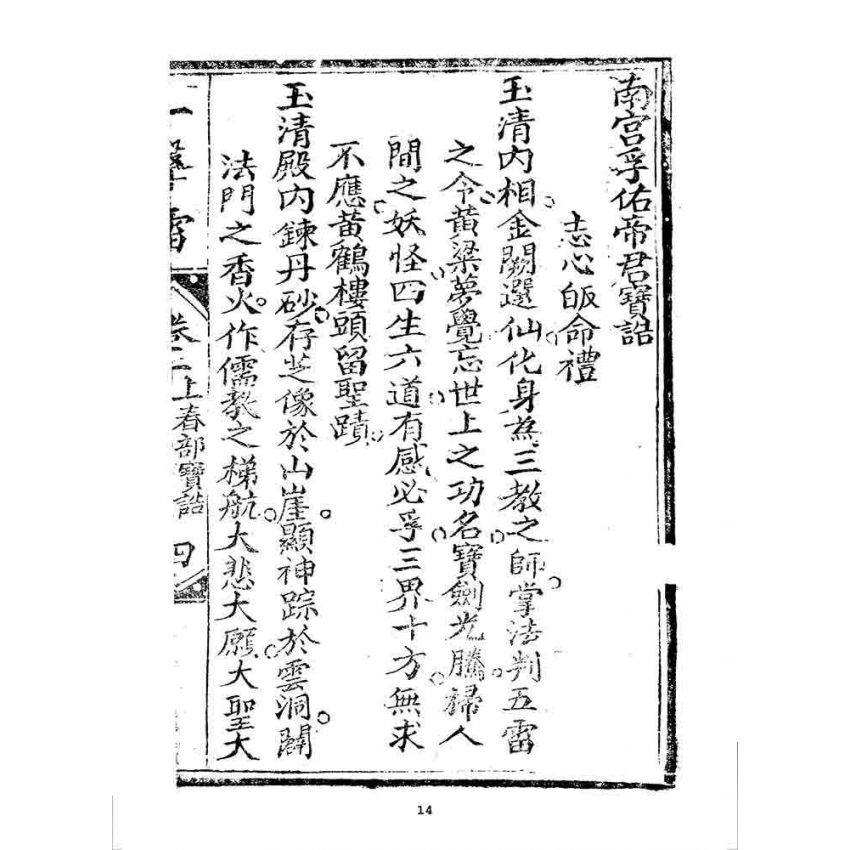 南宫孚佑帝君寶誥
志心皈命禮
玉清内相。金闕選仙。化身為三教之師。掌法判五雷
之令。黃粱夢覺。忘世上之功名。寶劍光騰。掃人
間之妖怪。四生六道。有感必孚。三界十方。無求
不應。黃鶴樓頭留聖蹟。
玉清殿内鍊丹砂。存芝像於山崖。顯神踪於雲洞。闢
法門之香火。作儒教之梯航。大悲大願。大聖大
卷二 上春部寶誥 四
14